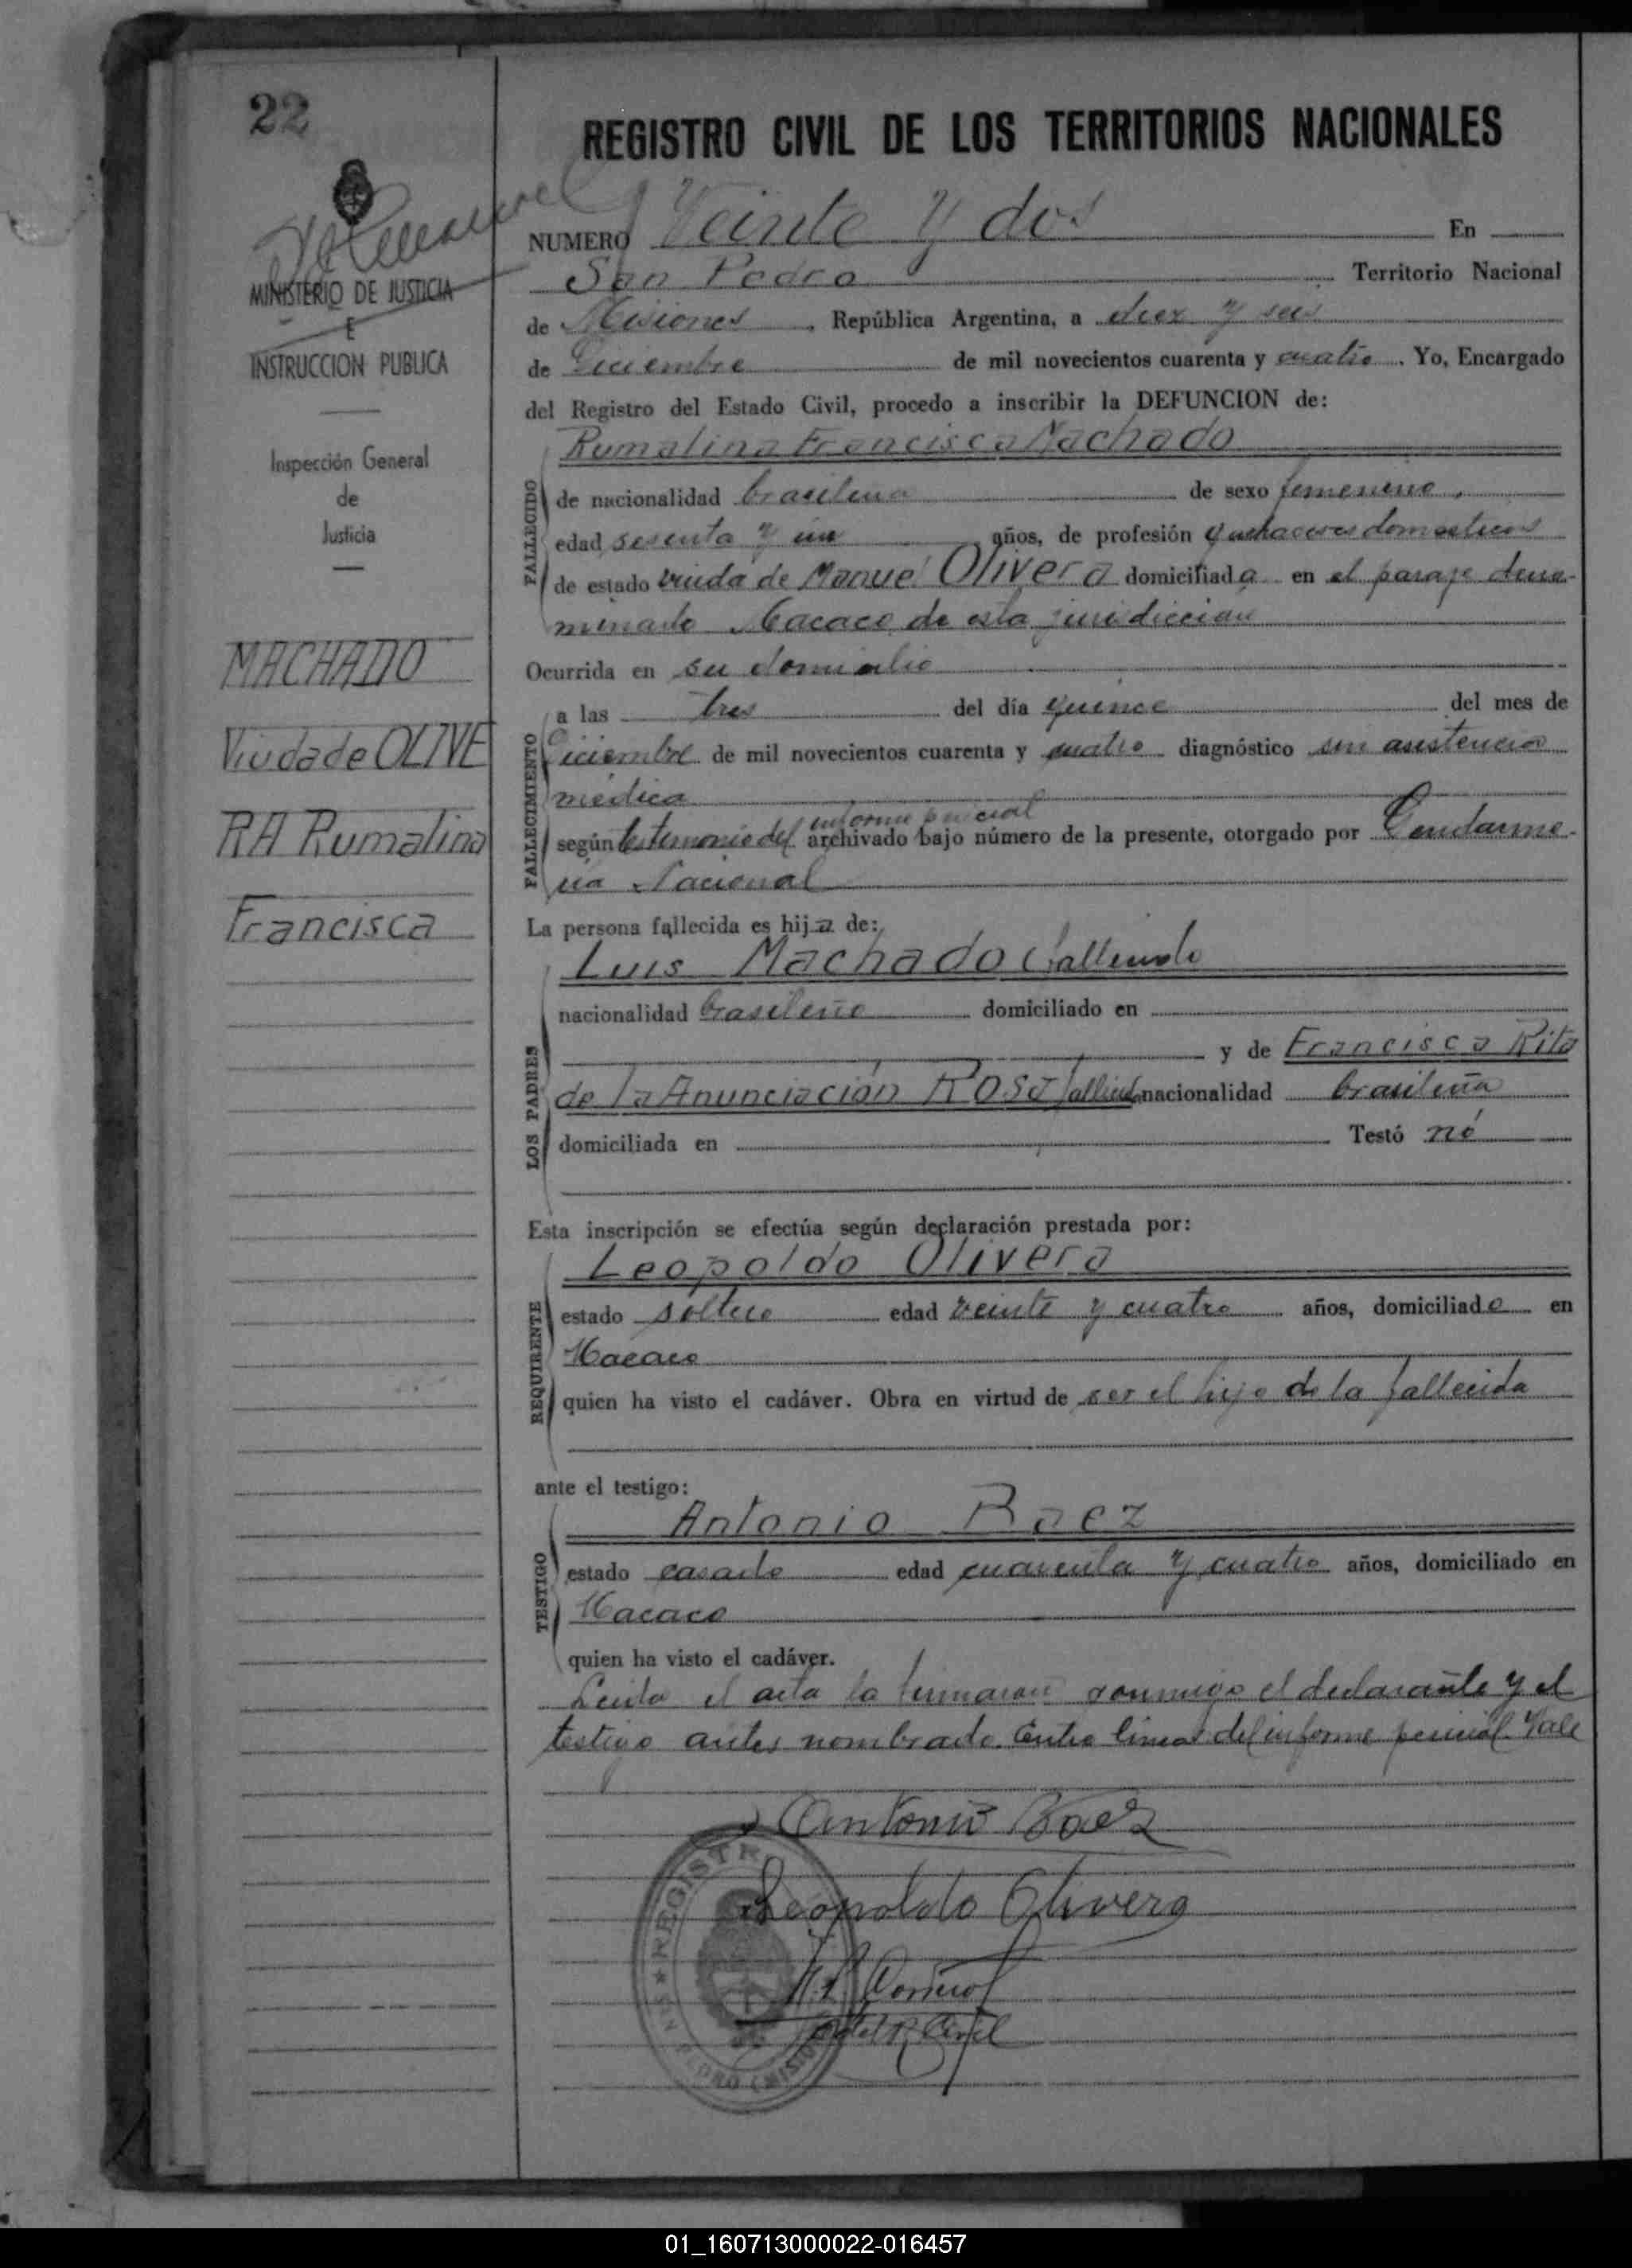 22
REGISTRO CIVIL DE LOS TERRITORIOS NACIONALES
MINISTERIO DE JUSTICIA
E
INSTRUCCION PUBLICA
Inspección General
de
Justicia
MACHADO
Viuda de OLIVE
RA Rumalina
Francisca
NUMERO Veinte y dos En
San Pedro Territorio Nacional
de Misiones, República Argentina, a diez y seis
de Diciembre de mil novecientos cuarenta y cuatro. Yo, Encargado
del Registro del Estado Civil, procedo a inscribir la DEFUNCION de:
Rumalina Francisca Machado
FALLECIDO
de nacionalidad brasilena de sexo femenino,
edad sesenta y un años, de profesión quehaceres domesticos
de estado viuda de Manuel Olivera domiciliada en el paraje deno-
minado Macaco de esta jurisdiccion
Ocurrida en su domicilio
FALLECIMIENTO
a las tres del día quince del mes de
Diciembre de mil novecientos cuarenta y cuatro diagnóstico sin asistencia
medica
informe pericial
según testimonio del archivado bajo número de la presente, otorgado por Gendarme-
ria Nacional
La persona fallecida es hija de:
LOS PADRES
Luis Machado fallecido
nacionalidad brasileño domiciliado en
y de Francisca Rita
de la Anunciación Rosa nacionalidad brasileña
domiciliada en Testó nó
Esta inscripción se efectúa según declaración prestada por:
REQUIRENTE
Leopoldo Olivera
estado soltero edad veinte y cuatro años, domiciliado en
Macaco
quien ha visto el cadáver. Obra en virtud de ser el hijo de la fallecida
ante el testigo:
TESTIGO
Antonio Baez
estado casado edad cuarenta y cuatro años, domiciliado en
Macaco
quien ha visto el cadáver.
Leida el acta la firmaron conmigo el declarante y el
testigo antes nombrado. Entre lineas del informe pericial. Vale
Antonio Baez
Leopoldo Olivera
del R. Civil
REGISTR
01_160713000022-016457